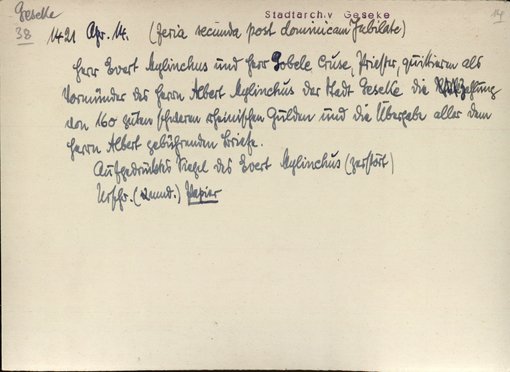 Geseke
38
Stadtarchiv Geseke
14
1421 Apr. 14. (feria secunda post dominicam Jubilate)
Herr Evert Mylinchus und Herr Gobele Cruse, Priester, quittieren als
Vormünder des Herrn Albert Mylinchus der Stadt Geseke die Zahlung
von 160 guten schweren rheinischen Gulden und die Übergabe aller dem
Herrn Albert gebührenden Briefe.
Aufgedrücktes Siegel des Evert Mylinchus (zerstört)
Urschr. ( ) Papier